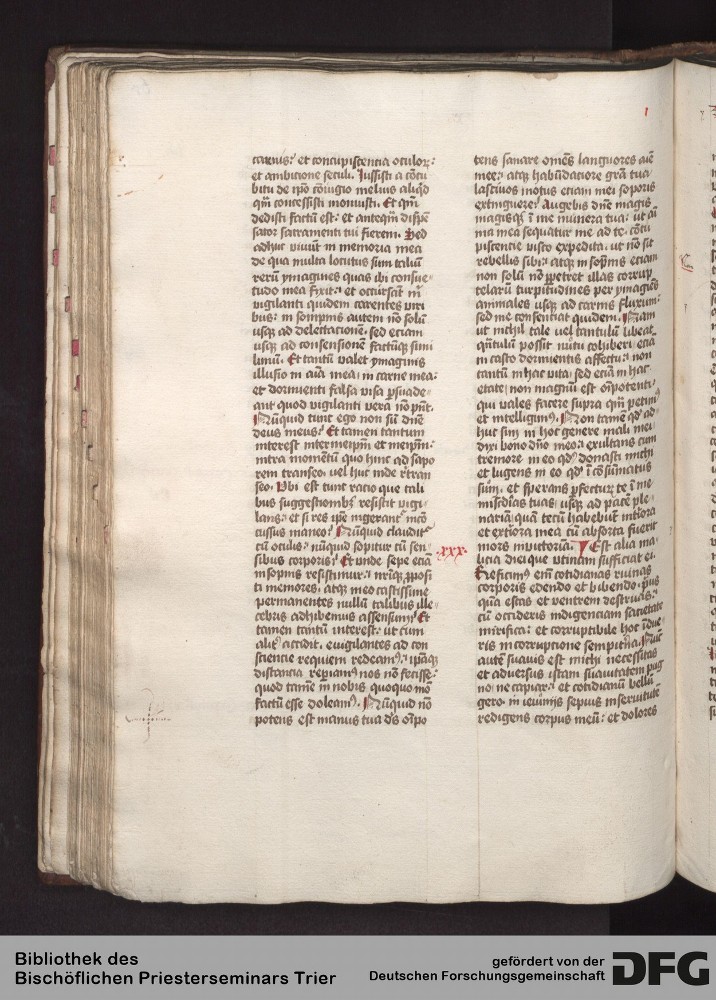 carnis: et concupiscentia oculorꝫ:
et ambicione seculi. Iussisti a cōcu
bitu de ip̄o cōiugio melius aliqͥd
qm̄ concessisti monuisti. Et qm̄
dedisti factū est: et anteqm̄ dispē
sator sacramenti tui fierem. Sed
adhuc viuūt in memoria mea
de qua multa locutus sum taliū
rerū ymagines quas ibi consue
tudo mea fixit: et occursāt m̄
vigilanti quidem carentes viri
bus: in sompnis autem nō solū
usqꝫ ad delectationē. sed eciam
usqꝫ ad consensionē factūqꝫ simi
limū. Et tantū valet ymaginis
illusio in aīa mea: in carne mea:
et dormienti falsa visa ꝑsuade
ant quod vigilanti vera nō pn̄t.
Nūquid tunc ego non sū dn̄e
deus meus? Et tamen tantum
interest inter meip̄m et meip̄m:
intra momētū quo hinc ad sapo
rem transeo. vel huc inde ret̄ran
seo. Vbi est tunc racio que tali
bus suggestionibꝫ resistit vigi
lans: et si res ip̄e ingerant̄ incō
cussus maneo? Nūquid claudit̄
cū oculis: nūquid sopitur cū sen
sibus corporis? Et unde sepe eciā
in sopnis resistimur: nr̄iqꝫ ꝓposi
ti memores. atqꝫ in eo castissime
permanentes nullū talibus ille
cebris adhibemus assensum? Et
tamen tantū interest: ut cum
alit̄ accidit. euigilantes ad con
scientie requiem redeamꝰ: ip̄aqꝫ
distancia reꝑiamꝰ nos nō fecisse:
quod tamē in nobis quoquo mō
factū esse doleamꝰ. Nūquid nō
potens est manus tua ds̄ om̄po
tens sanare omēs languores aīe
mee: atqꝫ habūdāciore grā tua
lasciuos motus etiam mei soporis
extinguere? Augebis dn̄e magis
magisqꝫ ī me munera tua: ut aī
ma mea sequatur me ad te. cōcu
piscentie visco expedita. ut nō sit
rebellis sibi: atqꝫ in sop̄nis eciam
non solū nō ꝑpetret illas corrup
telarū turpitudines per ymagīes
animales usqꝫ ad carnis fluxum:
sed ne consenciat quidem. Nam
ut nichil tale vel tantulū libeat.
qn̄tulū possit nutu cohiberi: eciā
in casto dormientis affectu: non
tantū in hac vita: sed eciā in hac
etate: non magnū est om̄potenti.
qui vales facere supra qm̄ petimꝰ
et intelligimꝰ. Non tamē qd̓ ad
huc sim in hoc genere mali mei
dixi bono dn̄o meo: exultans cum
tremore in eo qd̓ donasti michi
et lugens in eo qd̓ īcōsūmatus
sum. et sperans ꝑfecturꝫ te ī me
mis̄cdias tuas: usqꝫ ad pacē ple
nariā: quā tecū habebūt int̄iora
et ext̄iora mea cū absorta fuerit
mors in victoriā.
xxx. Est alia ma
licia diei que vtinam sufficiat ei.
Reficimꝰ em̄ cotidianas ruinas
corporis edendo et bibendo. pͥus
qua escas et ventrem destruas:
cū occideris indigenciam sacietate
mirifica: et corruptibile hoc īdue
ris in corruptione sempitn̄a. Nūc
autē suauis est michi necessitas
et aduersus istam suauitatem pug
no: ne capiar: et cotidianū bellū
gero. in ieiunijs sepius in seruitutē
redigens corpus meū: et dolores
Bibliothek des
Bischöflichen Priesterseminars Trier
gefördert von der
Deutschen Forschungsgemeinschaft
DFG